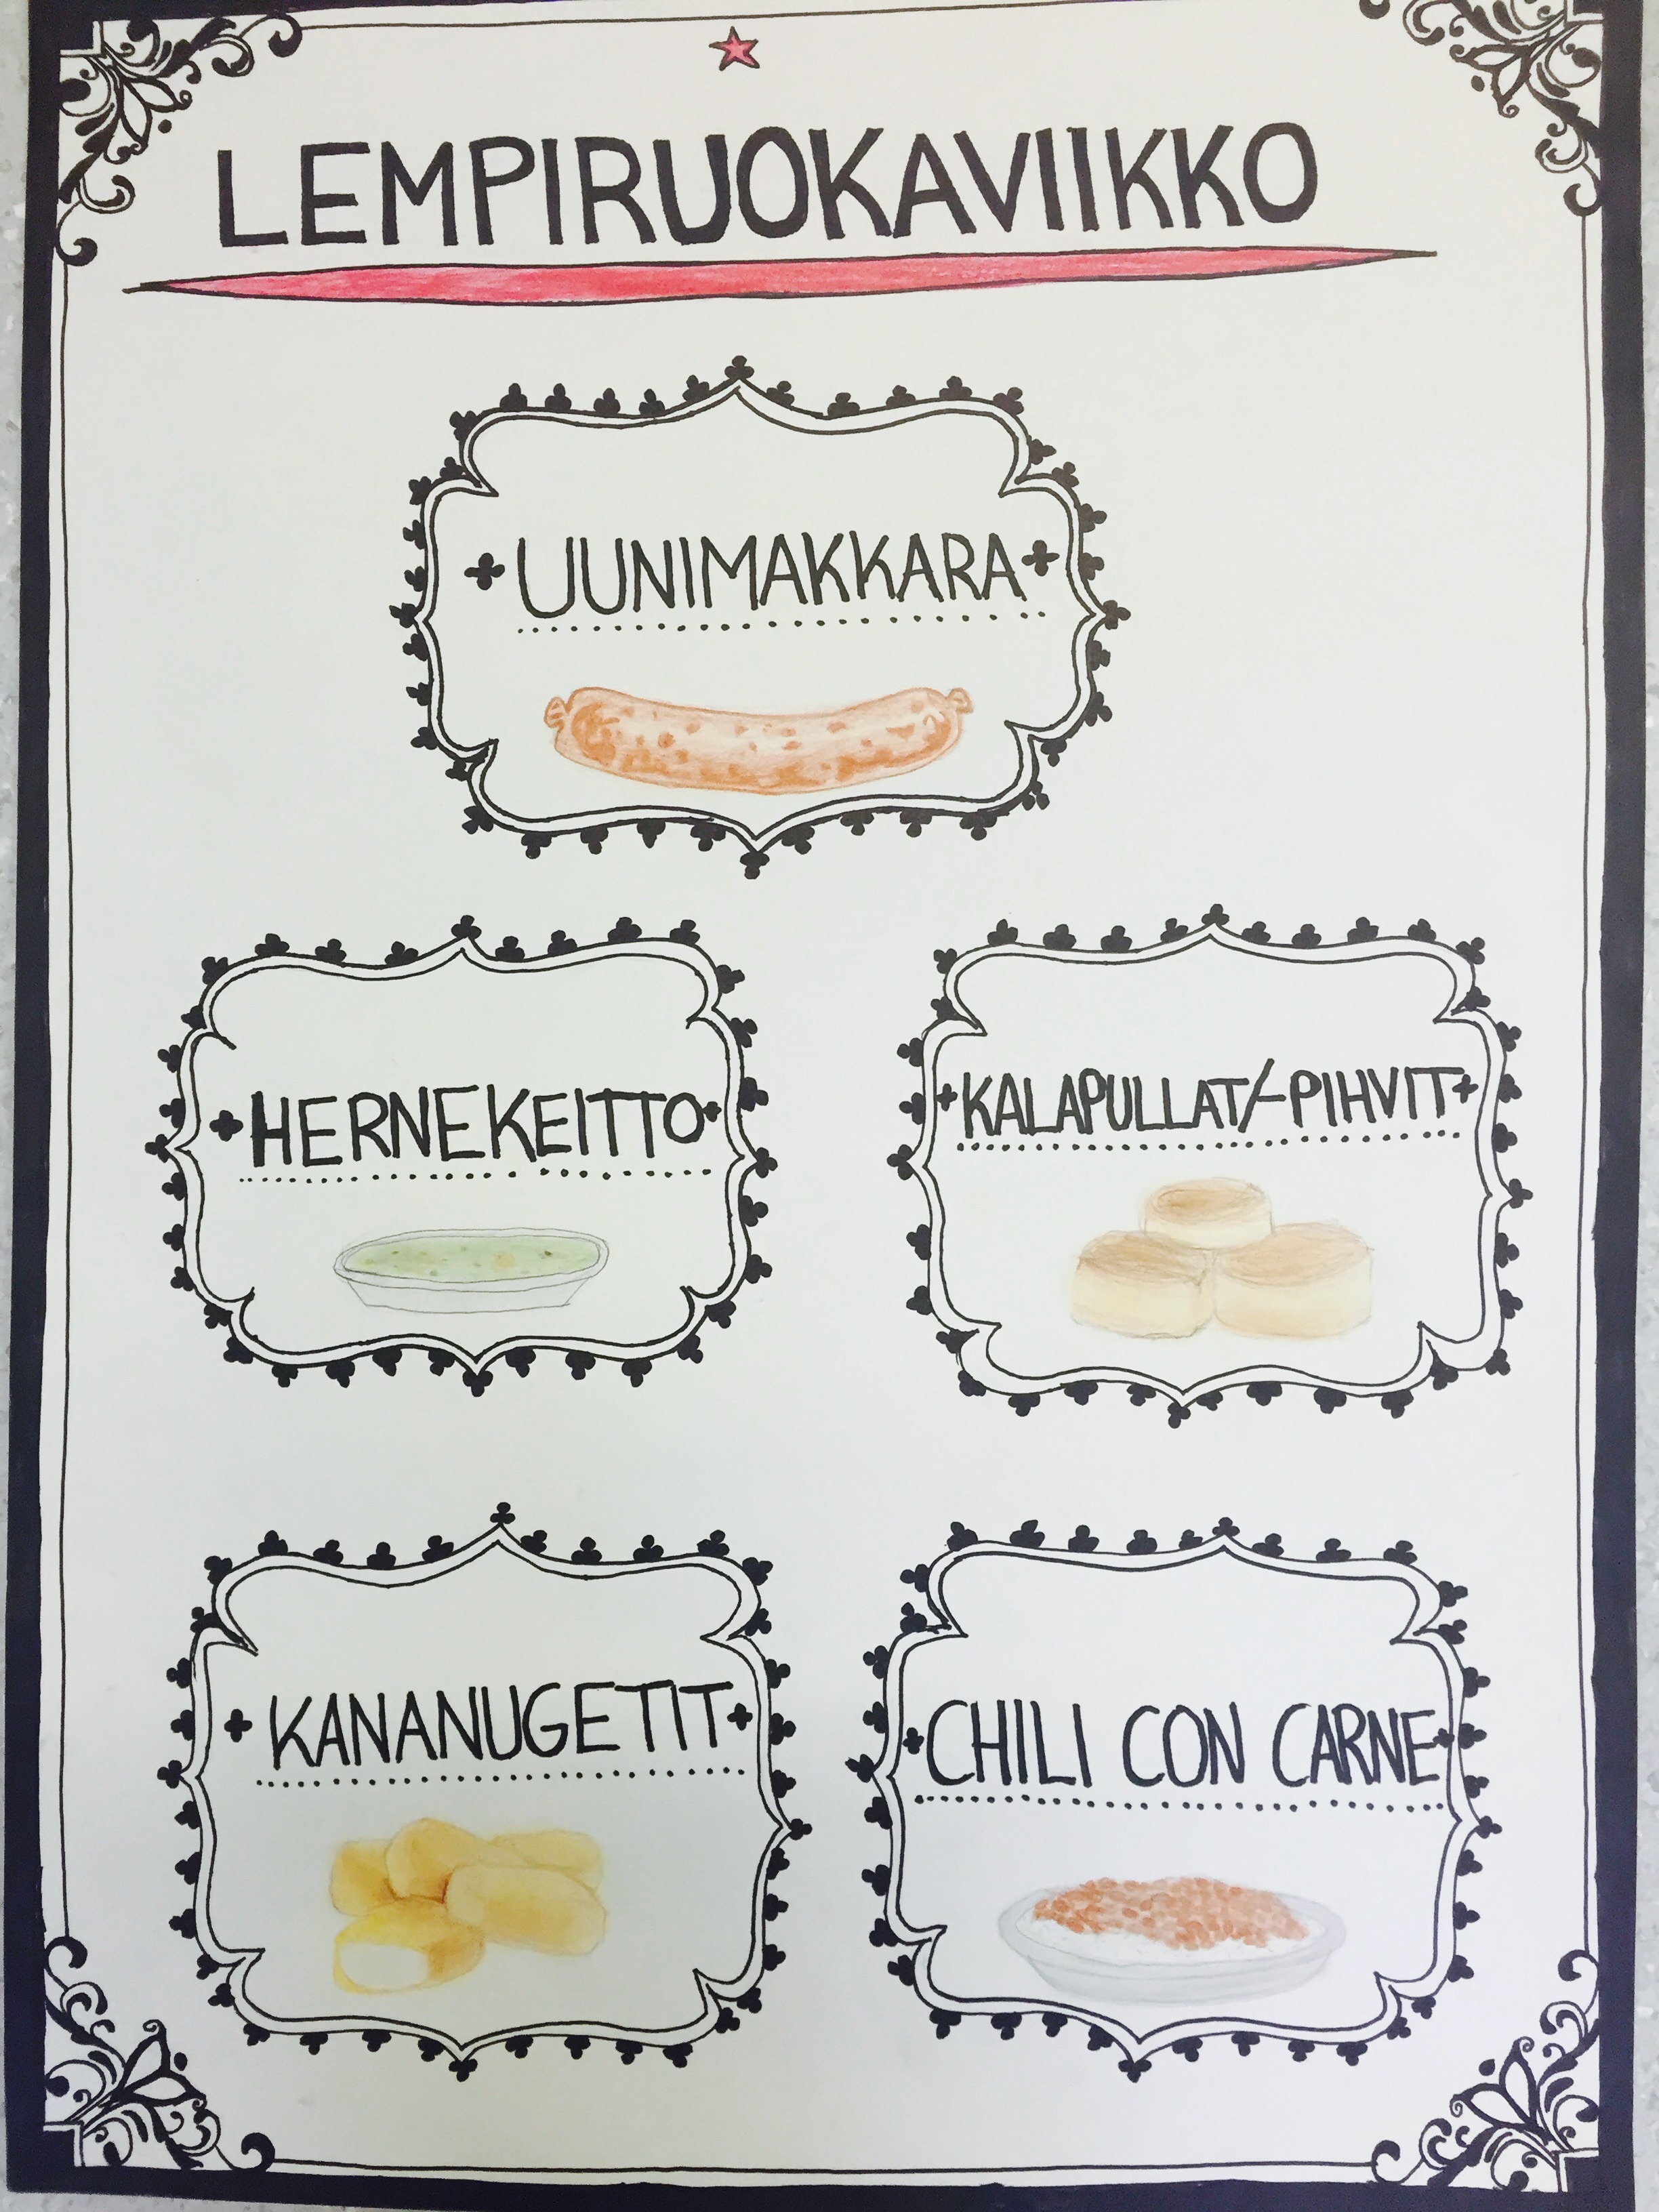 LEMPIRUOKAVIIKKO
UUNIMAKKARA
HERNEKEITTO
KALAPULLAT/-PIHVIT
KANANUGETIT
CHILI CON CARNE